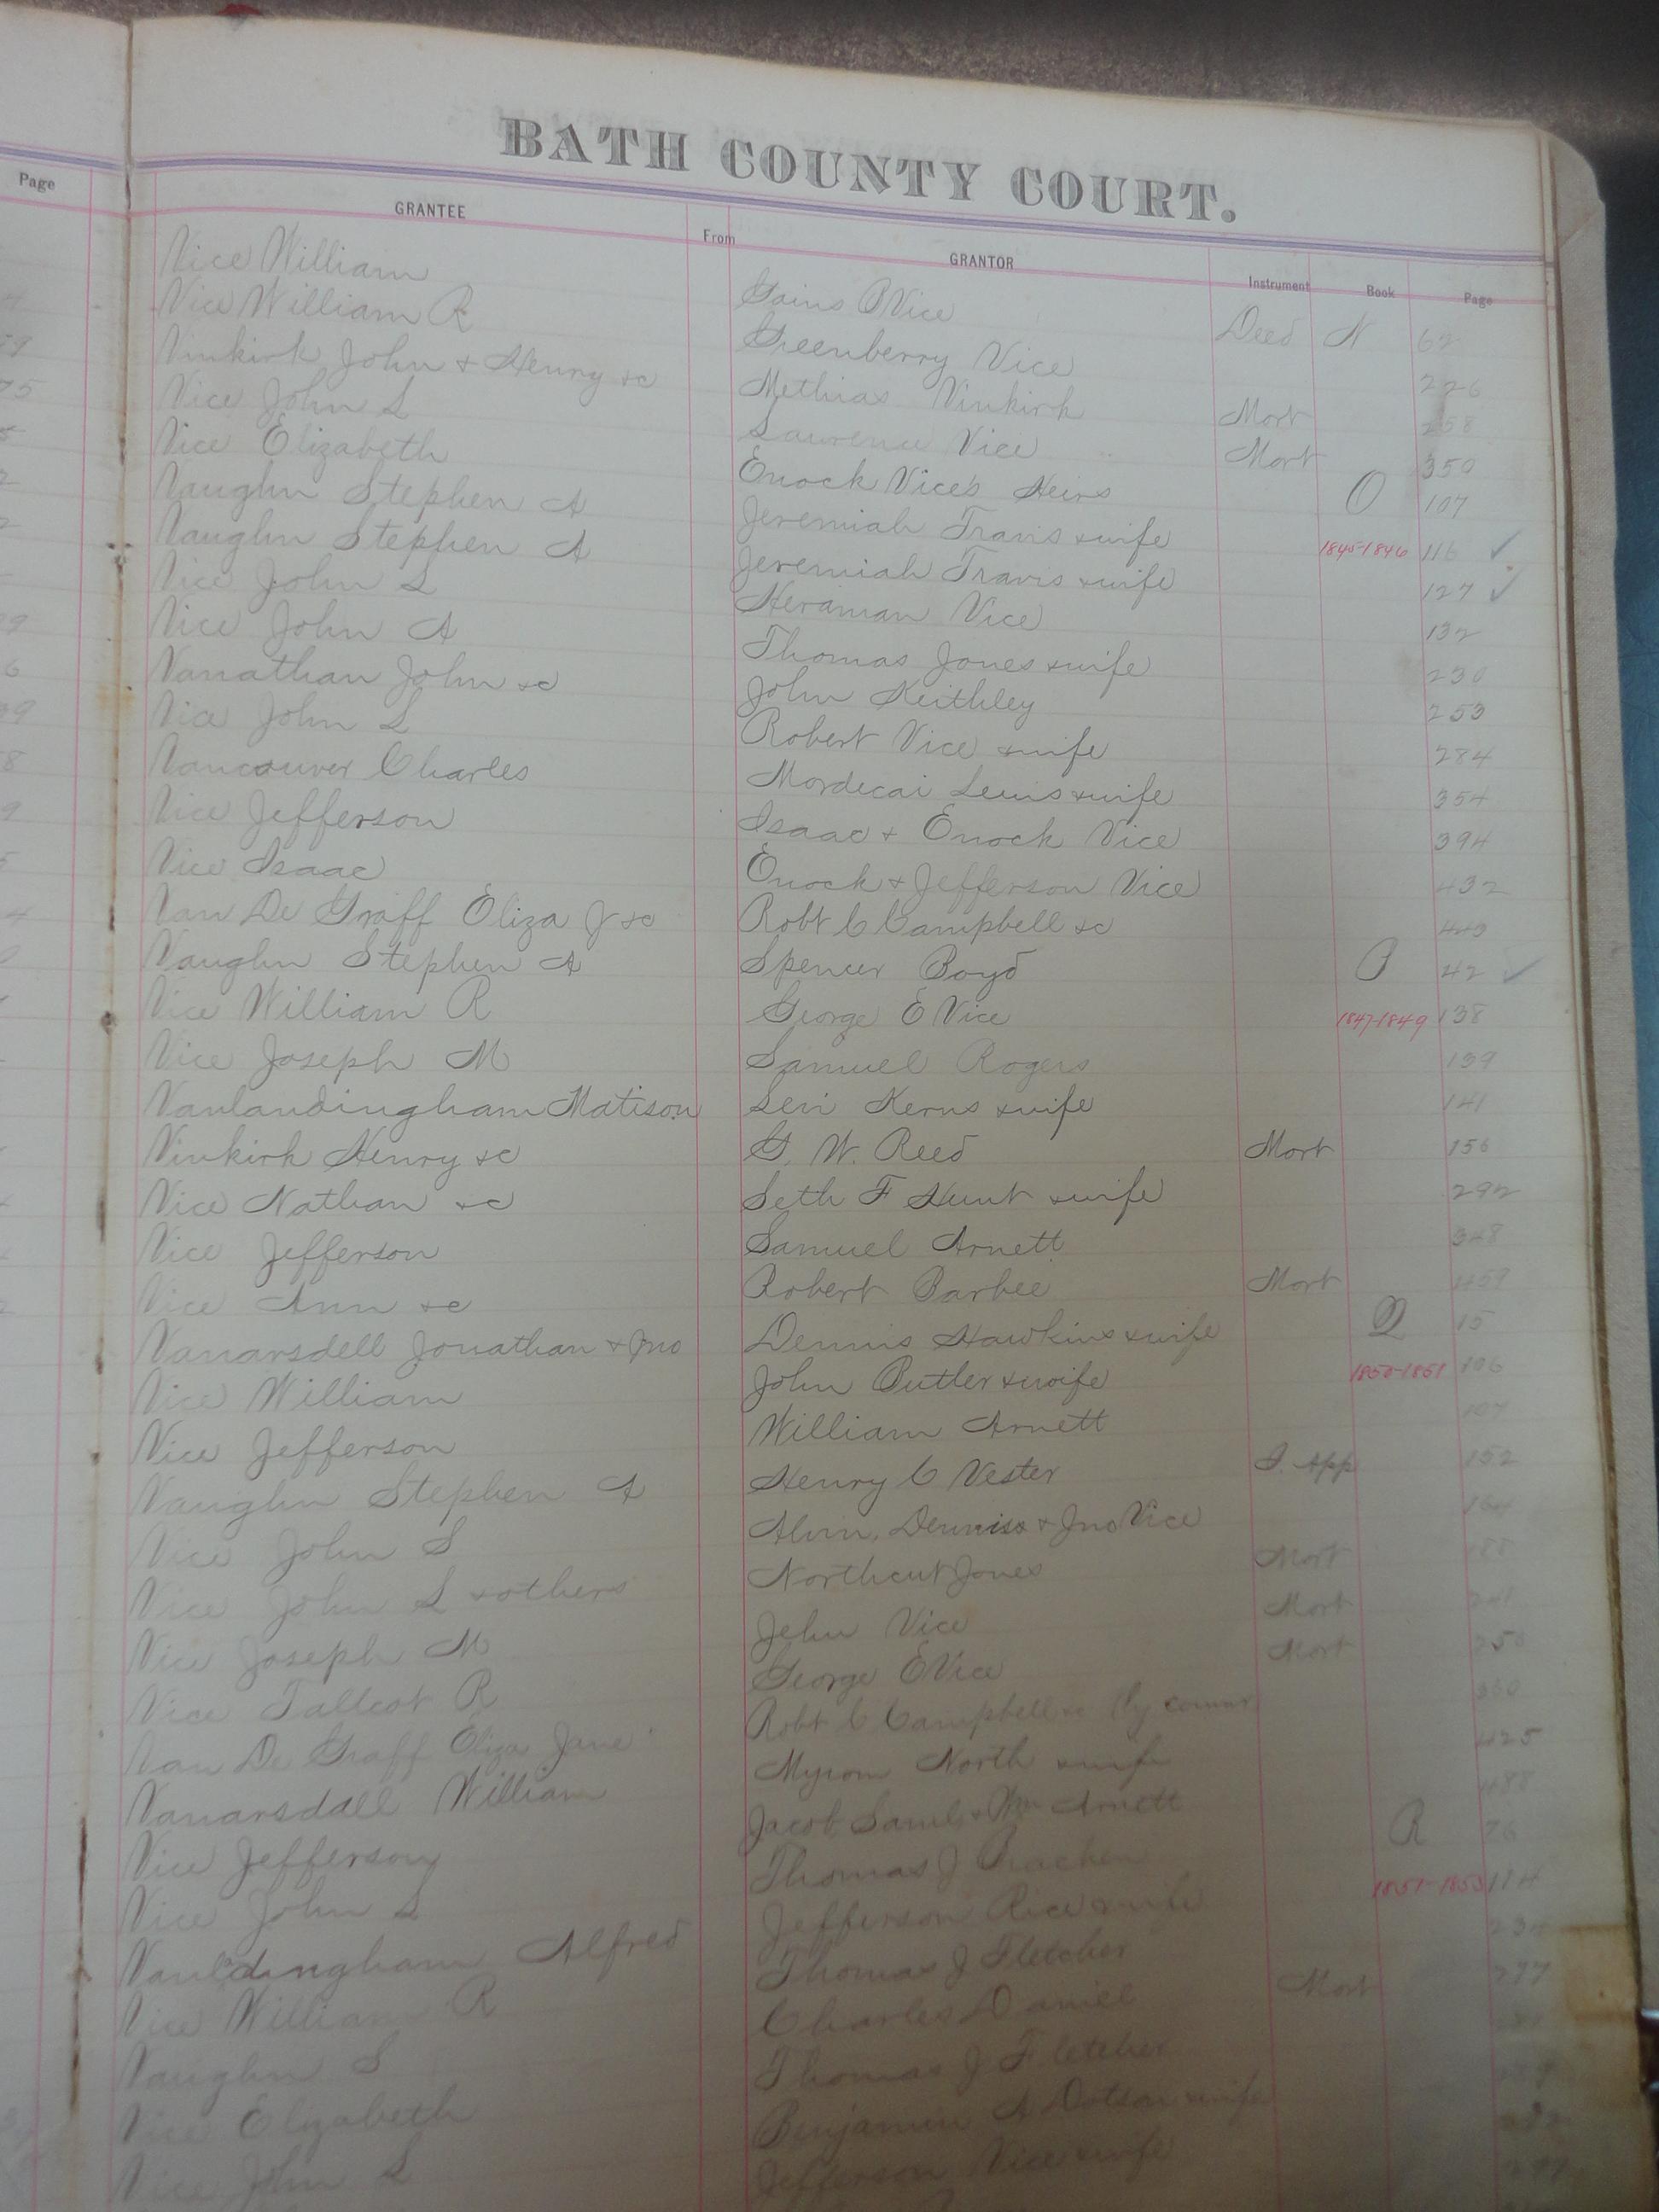 BATH COUNTY COURT.
Page GRANTEE From GRANTOR Instrument Book Page
Vice William Gains P Vice Deed N 62
Vice William R Greenberry Vice 226
Vinkirk John & Henry &c Methias Vinkirk Mort 258
Vice John L Lawrence Vice Mort 350
Vice Elizabeth Enock Vice's Heirs O 107
Vaughn Stephen A Jeremiah Travis & wife 1845-1846 116 ✓
Vaughn Stephen A Jeremiah Travis & wife 127 ✓
Vice John L Heraman Vice 132
Vice John A Thomas Jones & wife 230
Vanathan John &c John Keithley 253
Vice John L Robert Vice & wife 284
Vancouver Charles Mordecai Lewis & wife 354
Vice Jefferson Isaac & Enock Vice 394
Vice Isaac Enock & Jefferson Vice 432
Van De Graff Eliza J &c Robt C Campbell &c 440
Vaughn Stephen A Spencer Boyd P 42 ✓
Vice William R George E Vice 1847-1849 138
Vice Joseph M Samuel Rogers 139
Vanlandingham Matison Levi Kerns & wife 141
Vinkirk Henry &c G. W. Reed Mort 156
Vice Nathan &c Seth F Hunt & wife 292
Vice Jefferson Samuel Arnett 348
Vice Ann &c Robert Barbee Mort 459
Vanarsdell Jonathan & Jno Dennis Hawkins & wife Q 15
Vice William John Butler & wife 1850-1851 106
Vice Jefferson William Arnett 107
Vaughn Stephen A Henry C Vester I. App 152
Vice John S Alvin, Dennis & Jno Vice 164
Vice John L & others Northcut Jones Mort 188
Vice Joseph M Jehu Vice Mort
Vice Tallcot R George E Vice Mort 250
Van De Graff Eliza Jane Robt C Campbell &c (by comnr
Vanarsdall William Myrom North & wife 425
Vice Jefferson Jacob Saml & Wm Arnett 488
Vice John L Thomas J Bracken R 26
Vanldingham Alfred Jefferson Rice & wife 1851-1853 114
Vice William R Thomas J Fletcher
Vaughn S Charles Daniel Mort 277
Vice Elizabeth Thomas J Fletcher
Vice John L Benjamin A Dotson & wife
Jefferson Vice & wife